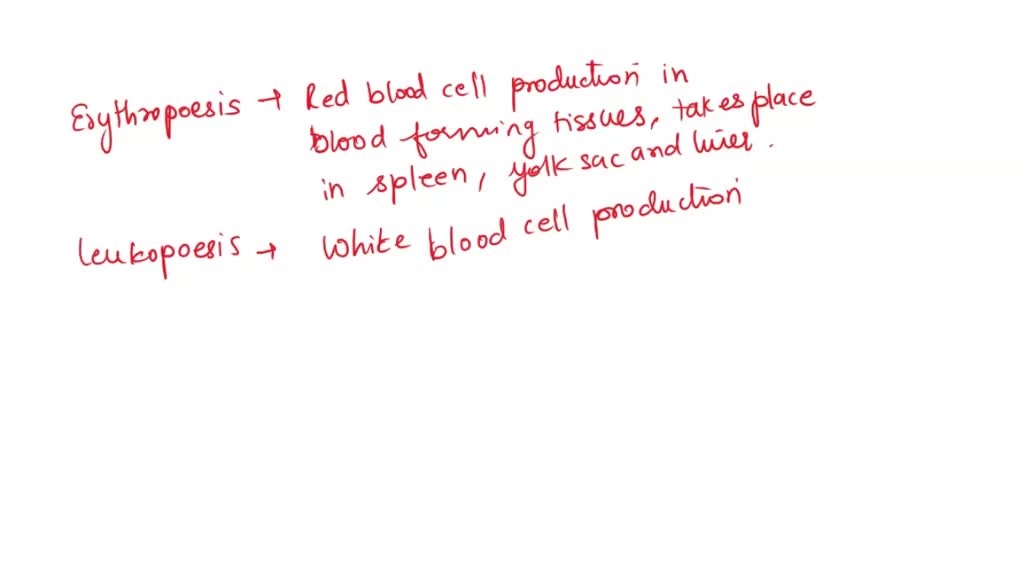 Erythropoesis → Red blood cell production in
blood forming tissues, takes place
in spleen, yolk sac and liver.
Leukopoesis → White blood cell production